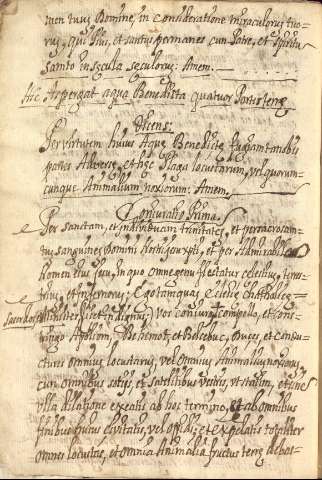 men tuus Domine, in consideratione miraculorus tuo-
rus, qui Vivis, et santus permanes cun Patre, et Spiritu
santo in secula seculorus: Amem.
Hic Aspergat aqua Benedicta quatuor Partis terrę
Dicens:
Per virtutem huius Aque Benedictę fugiant a nobis
partes Aduerse, et hęc Plaga locustarum, vel quorum-
cunque Animalium noxiorum: Amem.
Coniuratio Prima.
Per sanctam, et indiuiduam trinitatem, et per sacrosan-
tus sanguinem Domini Nostri Jesu xpti, et per Admirabile
Nomen eius Jesu, in quo omne genu flectatur celestius, terres-
trius, et infernorus; Ego tamquas Eclesie Chatholice
Sacerdos (licet indignus) Vos coniuro, compello, et cons-
tringo Apolion, Behemot, et Belcebuc, Duces, et condu-
ctures omnius locustarus, vel Omnius Animalius noxiorus
cun omnibus sotijs, et Satelitibus vestris, ut statim, et sine
ulla dillatione exeatis ab hoc termino, et ab omnibus
finibus huius ciuitatis, vel opidi; et expelatis totaliter
omnes locustas, et omnia Animalia fructus terrę deuas-